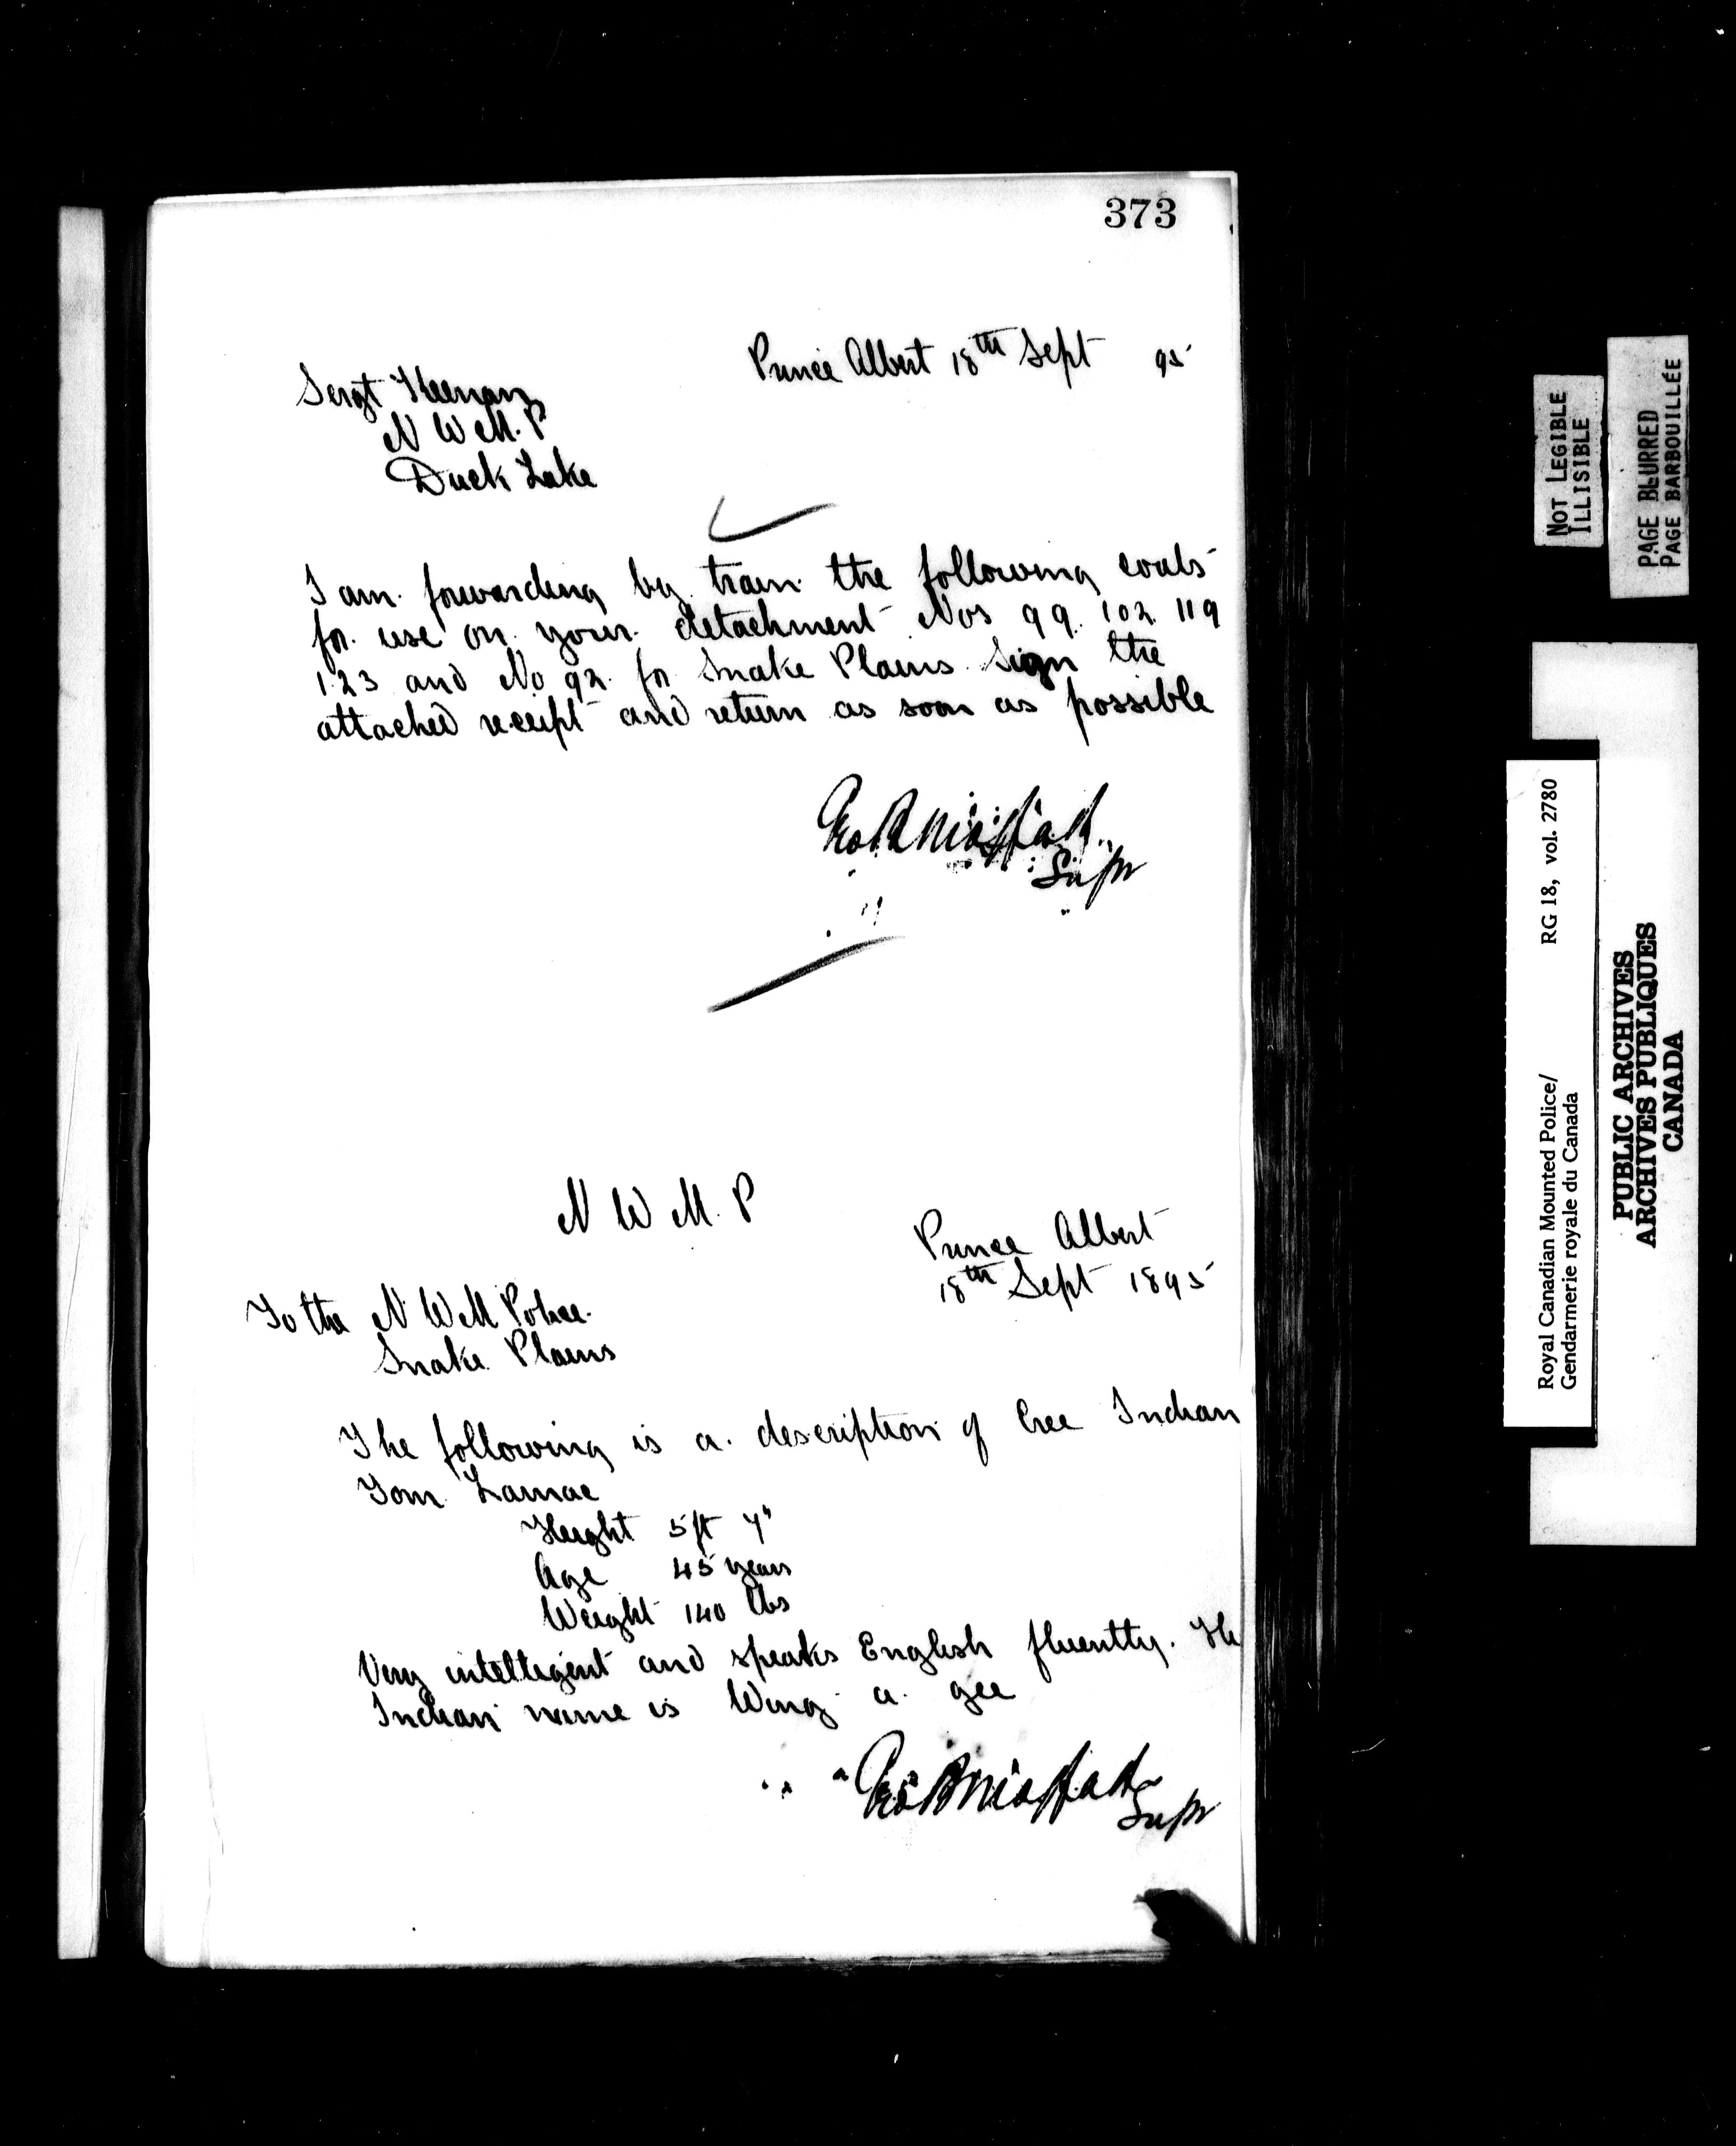 373
Prince Albert 18th Sept 95
Sergt Keenan
N W M. P
Duck Lake
I am forwarding by train the following coats
for use on your detachment Nos 99. 102 119
123 and No 92 for Snake Plains Sign the
attached receipt and return as soon as possible
Moffatt
Supr
N W M. P
Prince Albert
18th Sept 1895
To the N W M Police
Snake Plains
The following is a description of Cree Indian
Tom Lamac
Height 5 ft 7"
Age 45 years
Weight 140 lbs
Very intelligent and speaks English fluently. He
Indian name is Wing a gee
Moffatt
Supr
NOT LEGIBLE
ILLISIBLE
PAGE BLURRED
PAGE BARBOUILLÉE
Royal Canadian Mounted Police/ RG 18, vol. 2780
Gendarmerie royale du Canada
PUBLIC ARCHIVES
ARCHIVES PUBLIQUES
CANADA